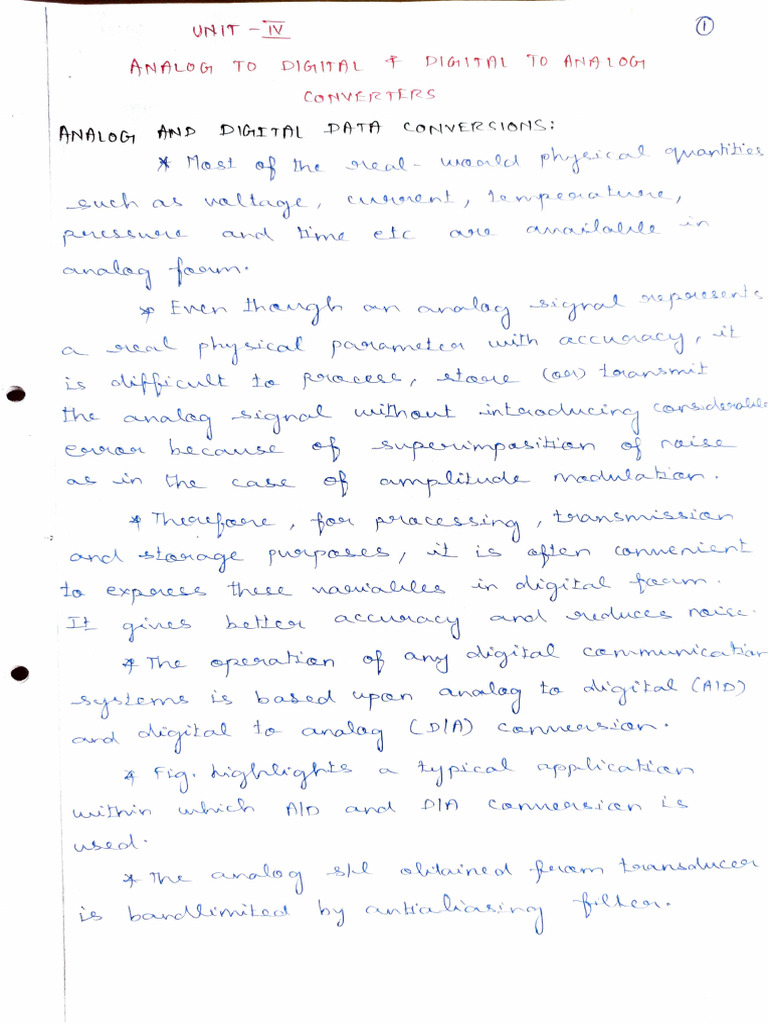 UNIT - IV
1
ANALOG TO DIGITAL & DIGITAL TO ANALOG
CONVERTERS
ANALOG AND DIGITAL DATA CONVERSIONS:
* Most of the real-world physical quantities
such as voltage, current, temperature,
pressure and time etc are available in
analog form.
* Even though an analog signal represents
a real physical parameter with accuracy, it
is difficult to process, store (or) transmit
the analog signal without introducing considerable
error because of superimposition of noise
as in the case of amplitude modulation.
* Therefore, for processing, transmission
and storage purposes, it is often convenient
to express these variables in digital form.
It gives better accuracy and reduces noise.
* The operation of any digital communication
systems is based upon analog to digital (A/D)
and digital to analog (D/A) conversion.
* Fig. highlights a typical application
within which A/D and D/A conversion is
used.
* The analog s/l obtained from transducer
is bandlimited by antialiasing filter.